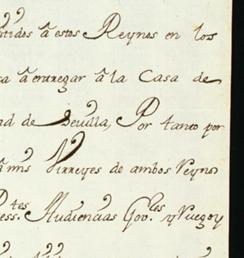 tidos a estos Reynos en los
a entregar a la Casa de
ad de Sevilla, Por tanto por
a mis Virreyes de ambos Reynos
Press.tes Audiencias Gov.les y Juezes y